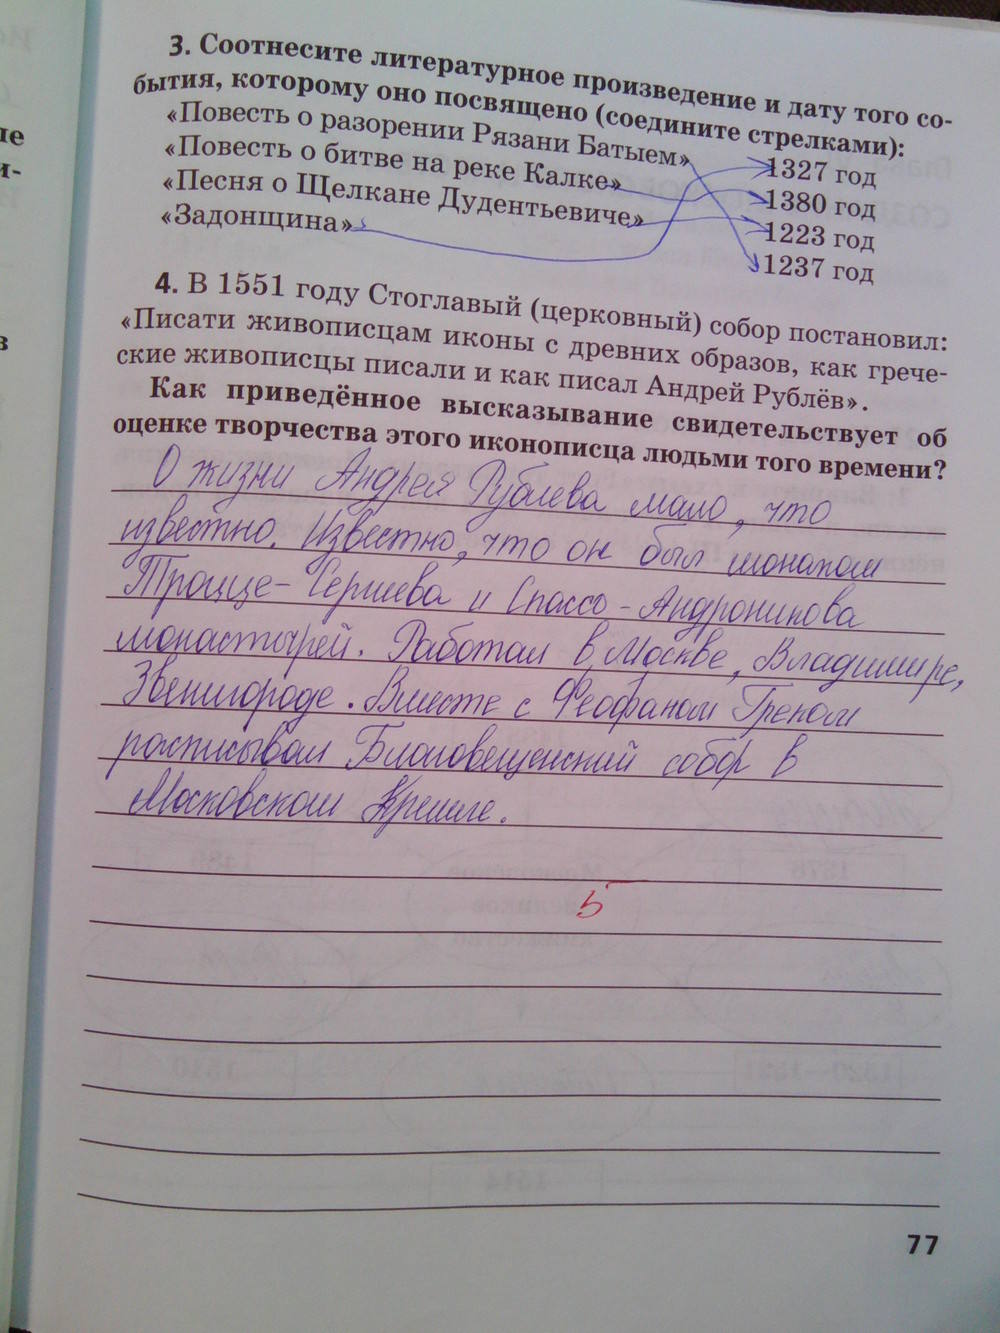 3. Соотнесите литературное произведение и дату того со-
бытия, которому оно посвящено (соедините стрелками):
«Повесть о разорении Рязани Батыем»
1327 год
«Повесть о битве на реке Калке»
1380 год
«Песня о Щелкане Дудентьевиче»
1223 год
«Задонщина»
1237 год
4. В 1551 году Стоглавый (церковный) собор постановил:
«Писати живописцам иконы с древних образов, как грече-
ские живописцы писали и как писал Андрей Рублёв».
Как приведённое высказывание свидетельствует об
оценке творчества этого иконописца людьми того времени?
О жизни Андрея Рублева мало, что
известно. Известно, что он был монахом
Троице-Сергиева и Спассо-Андроникова
монастырей. Работал в Москве, Владимире,
Звенигороде. Вместе с Феофаном Греком
расписывал Благовещенский собор в
Московском Кремле.
5
77